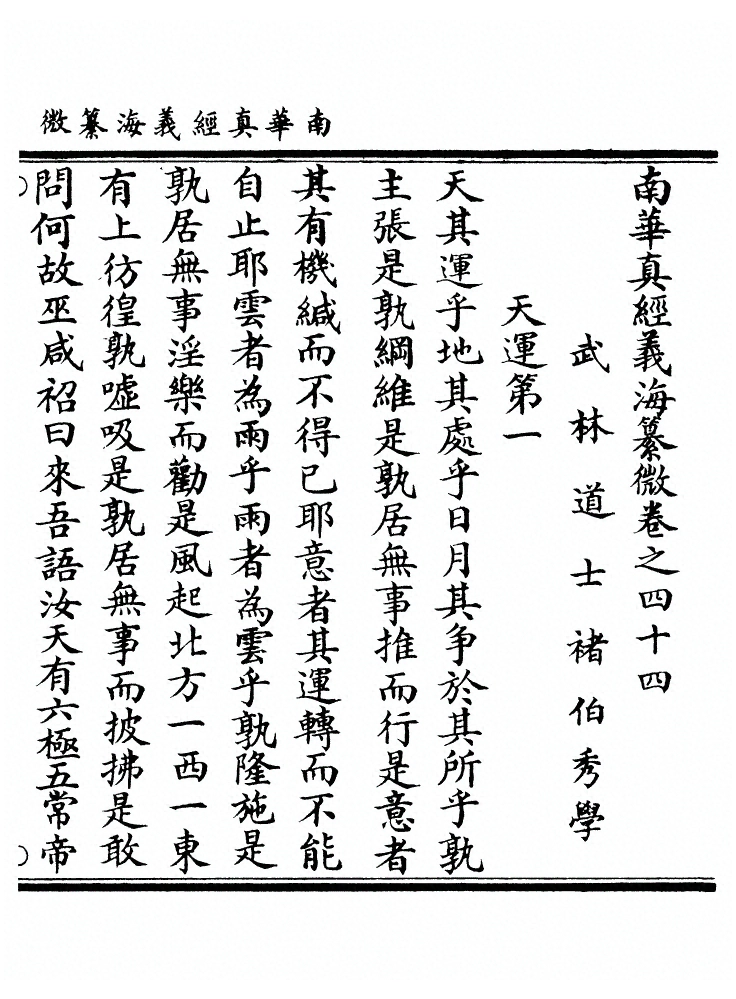 南華真經義海纂微
南華真經義海纂微卷之四十四
武林道士褚伯秀學
天運第一
天其運乎地其處乎日月其争於其所乎孰
主張是孰綱維是孰居無事推而行是意者
其有機緘而不得已耶意者其運轉而不能
自止耶雲者為雨乎雨者為雲乎孰隆施是
孰居無事淫樂而勸是風起北方一西一東
有上彷徨孰噓吸是孰居無事而披拂是敢
問何故巫咸祒曰來吾語汝天有六極五常帝